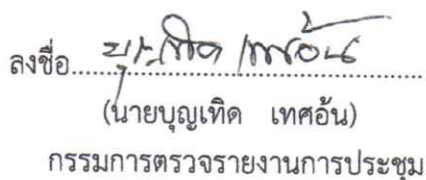 ลงชื่อ.....บุญเทิด เทศอ้น.....
(นายบุญเทิด เทศอ้น)
กรรมการตรวจรายงานการประชุม